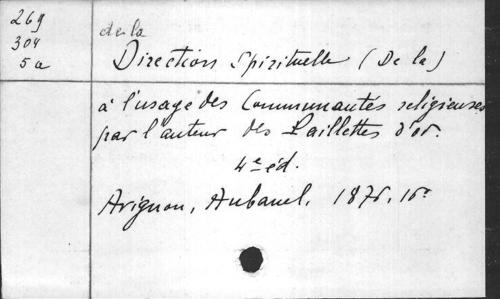 269
304
5a
de la
Direction Spirituelle (De la)
à l'usage des Communautés religieuses
par l'auteur des Paillettes d'or.
4e éd.
Avignon, Aubanel, 1876, 16°